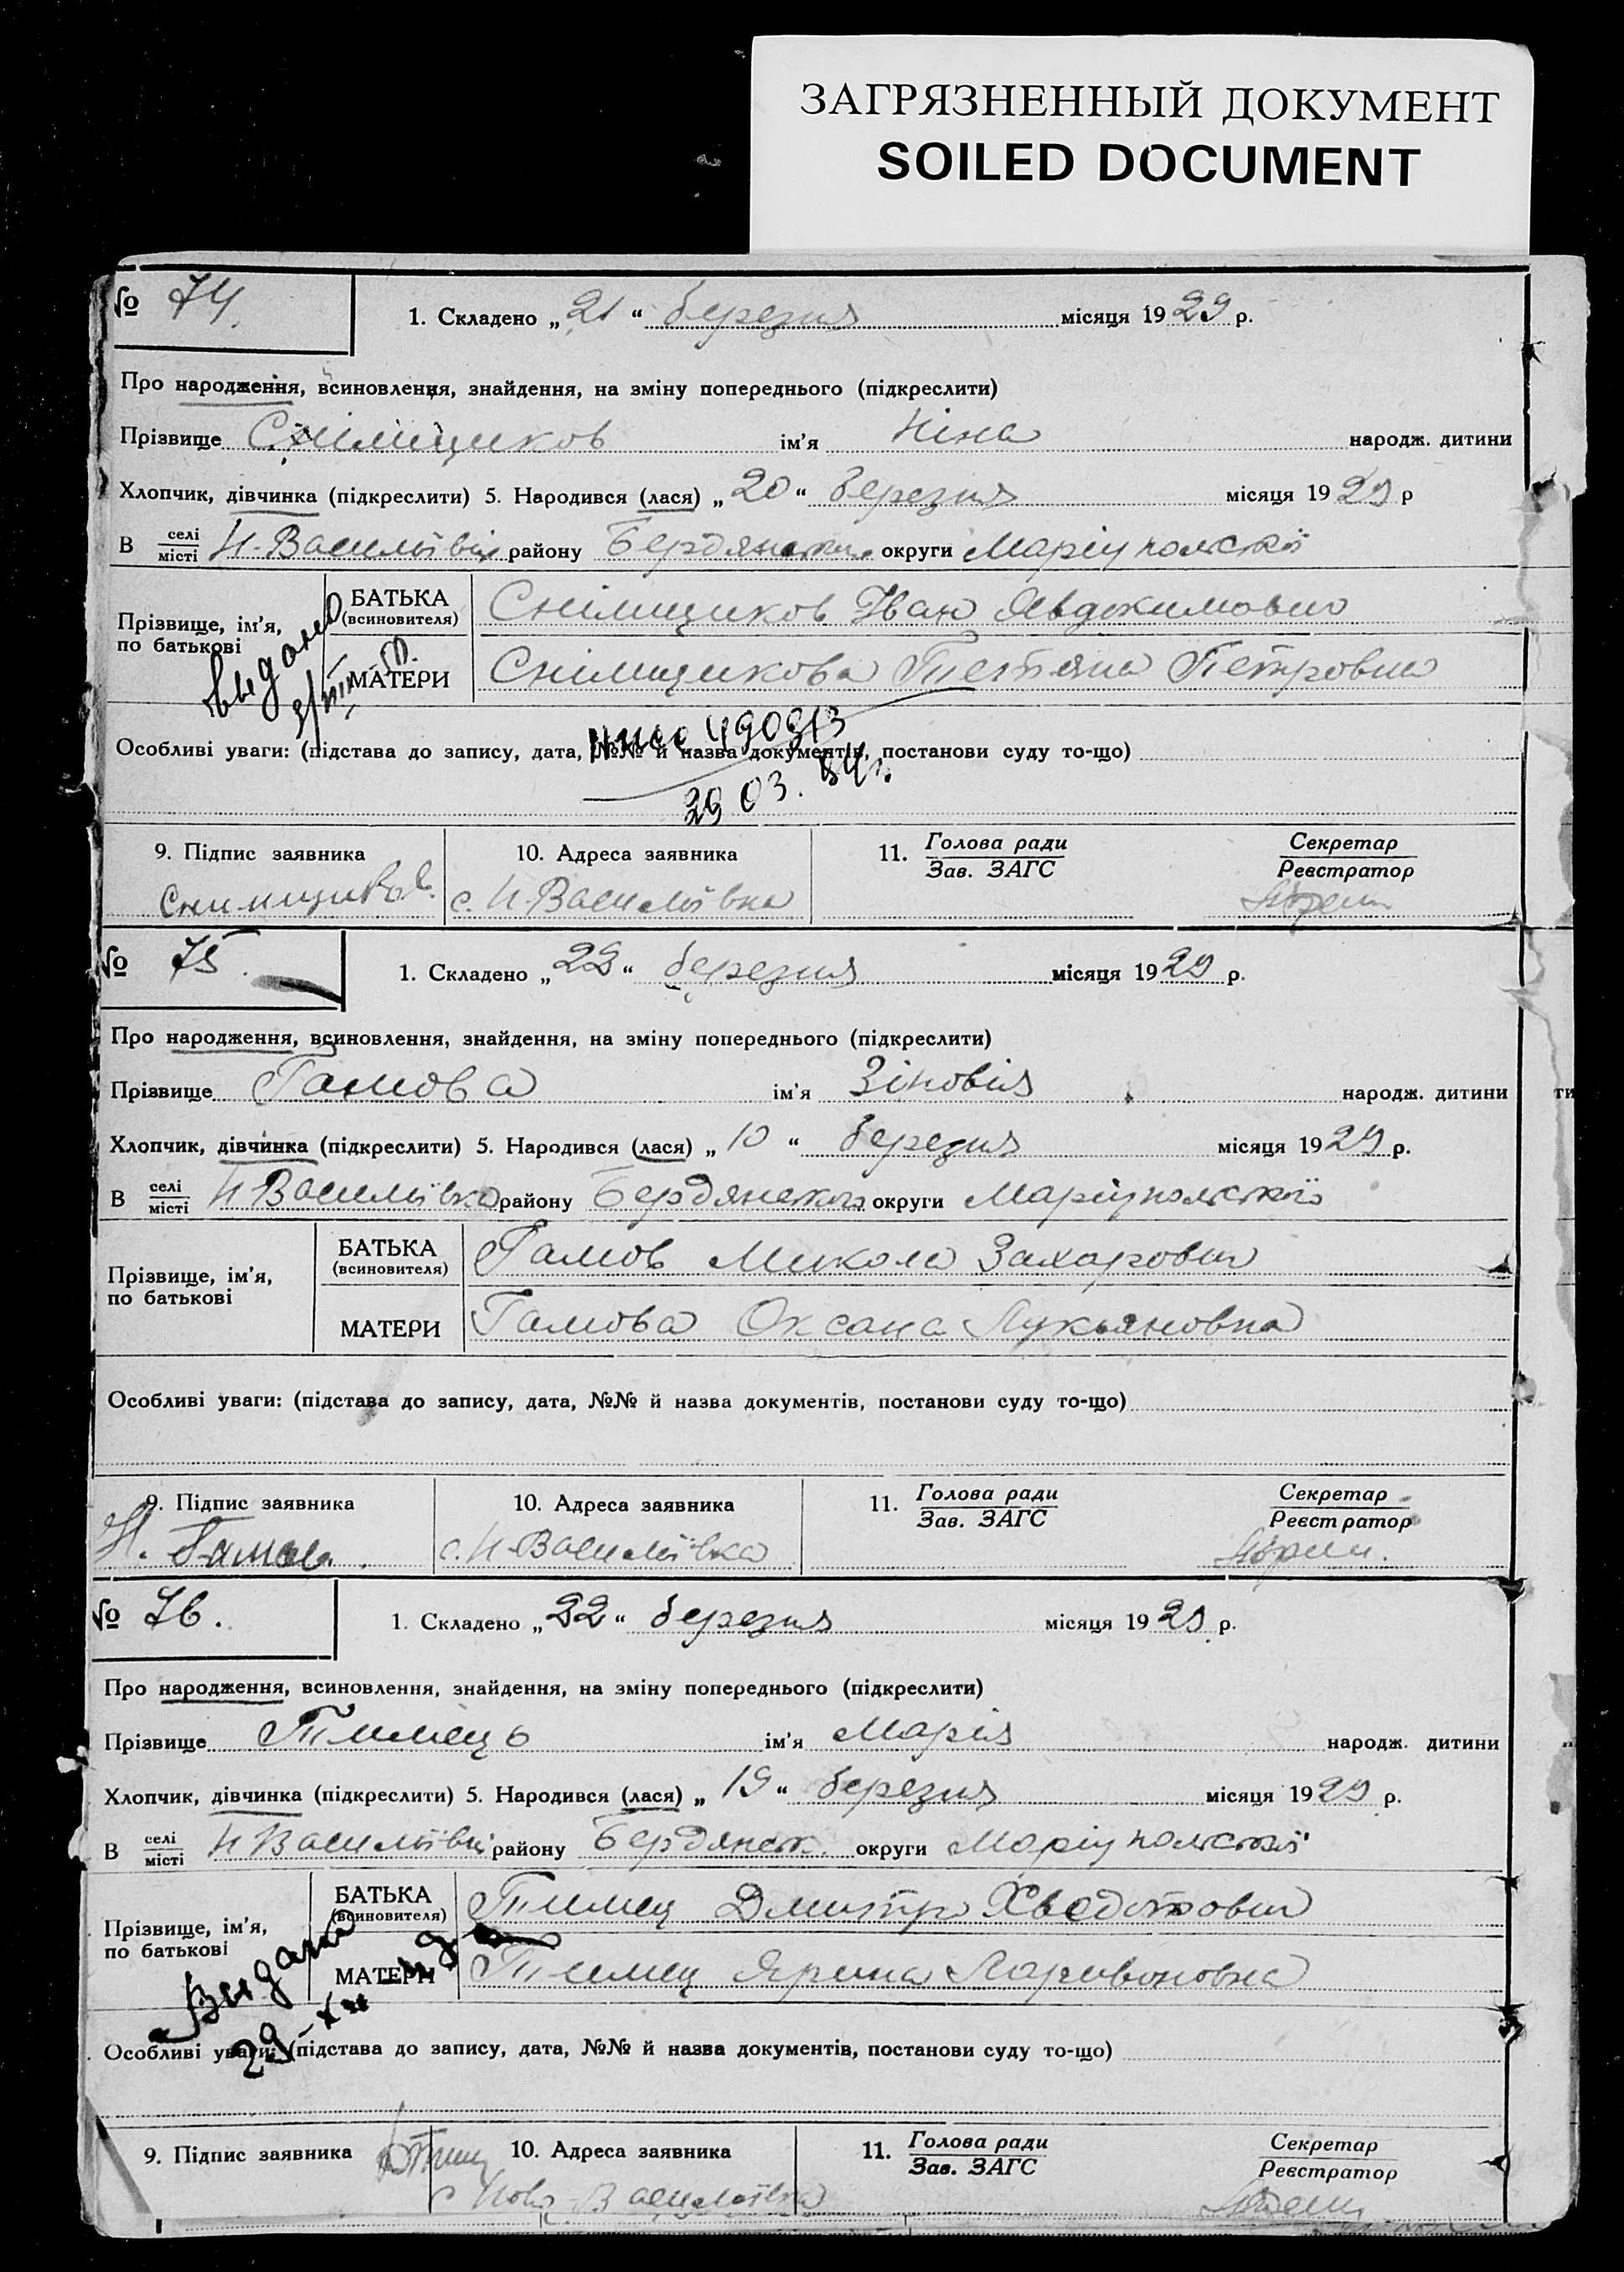 ЗАГРЯЗНЕННЫЙ ДОКУМЕНТ
SOILED DOCUMENT
№ 74. 1. Складено „21“ березня місяця 1929 р.
Про народження, всиновлення, знайдення, на зміну попереднього (підкреслити)
Прізвище Снімщиков ім'я Ніна народж. дитини
Хлопчик, дівчинка (підкреслити) 5. Народився (лася) „20“ березня місяця 1929 р
В селі/місті Н-Василівці району Бердянськ округи Маріупольської
Прізвище, ім'я, по батькові
БАТЬКА (всиновителя) Снімщиков Іван Явдокимович
МАТЕРИ Снімщикова Тетяна Петровна
выдано
Особливі уваги: (підстава до запису, дата, №№ й назва документів, постанови суду то-що)
490913
29 03. 84г.
9. Підпис заявника 10. Адреса заявника 11. Голова ради Секретар
Зав. ЗАГС Реєстратор
Снимщиков с. Н-Василівка
№ 75. 1. Складено „22“ березня місяця 1929 р.
Про народження, всиновлення, знайдення, на зміну попереднього (підкреслити)
Прізвище Гамова ім'я Зіновія народж. дитини
Хлопчик, дівчинка (підкреслити) 5. Народився (лася) „10“ березня місяця 1929 р.
В селі/місті Н Василівка району Бердянського округи Маріупольської
Прізвище, ім'я, по батькові
БАТЬКА (всиновителя) Гамов Микола Захарович
МАТЕРИ Гамова Оксана Лукьяновна
Особливі уваги: (підстава до запису, дата, №№ й назва документів, постанови суду то-що)
9. Підпис заявника 10. Адреса заявника 11. Голова ради Секретар
Зав. ЗАГС Реєстратор
Н. Гамов. с. Н-Василівка
№ 76. 1. Складено „22“ березня місяця 1929 р.
Про народження, всиновлення, знайдення, на зміну попереднього (підкреслити)
Прізвище Тимець ім'я Марія народж. дитини
Хлопчик, дівчинка (підкреслити) 5. Народився (лася) „19“ березня місяця 1929 р.
В селі/місті Н Василівці району Бердянськ. округи Маріупольської
Прізвище, ім'я, по батькові
БАТЬКА (всиновителя) Тимец Дмитро Хведотович
МАТЕРИ Тимец Ярина Ларивоновна
Выдано
Особливі уваги: (підстава до запису, дата, №№ й назва документів, постанови суду то-що)
9. Підпис заявника 10. Адреса заявника 11. Голова ради Секретар
Зав. ЗАГС Реєстратор
с Ново-Василівка